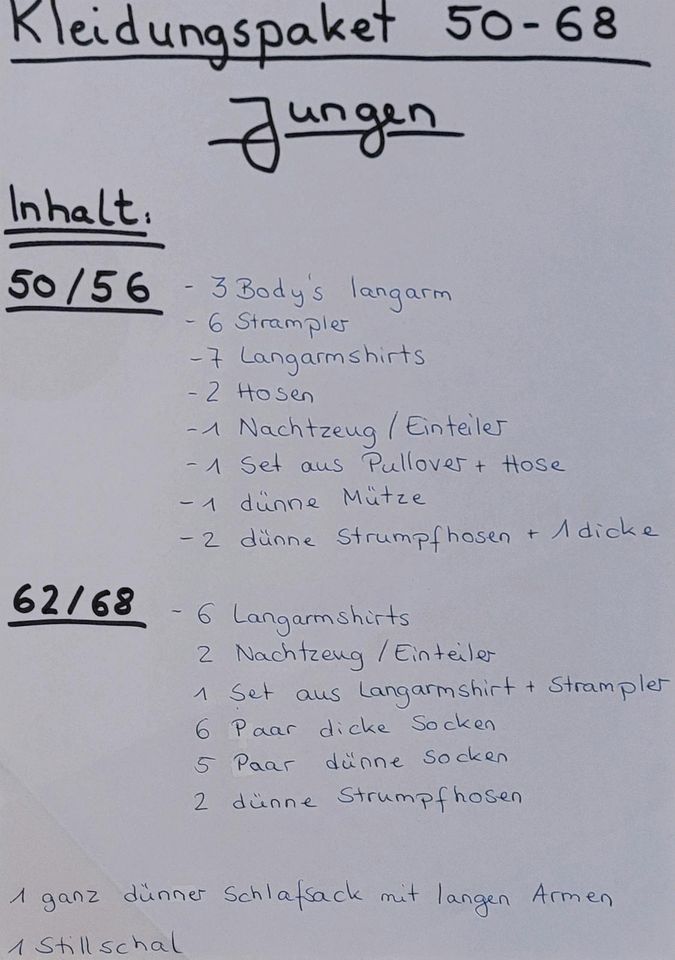 Kleidungspaket 50-68
Jungen
Inhalt:
50/56 - 3 Body's langarm
- 6 Strampler
- 7 Langarmshirts
- 2 Hosen
- 1 Nachtzeug / Einteiler
- 1 Set aus Pullover + Hose
- 1 dünne Mütze
- 2 dünne Strumpfhosen + 1 dicke
62/68 - 6 Langarmshirts
2 Nachtzeug / Einteiler
1 Set aus Langarmshirt + Strampler
6 Paar dicke Socken
5 Paar dünne Socken
2 dünne Strumpfhosen
1 ganz dünner Schlafsack mit langen Armen
1 Stillschal